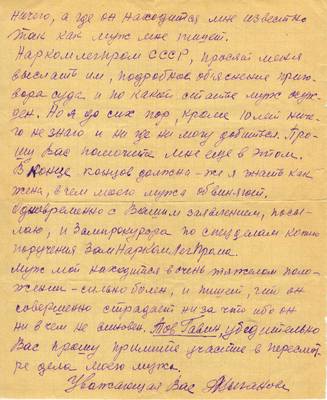 ничего, а где он находится мне известно
так как муж мне пишет.
Наркомлегпром СССР, просят меня
выслать им, подробное объяснение приго-
вора суда и по какой статье муж осуж-
ден. Но я до сих пор, кроме 10 лет ниче-
го не знаю и нигде не могу добится. Про-
шу Вас помогите мне еще в этом.
В конце концов должна-же я знать как
жена, в чем моего мужа обвиняют.
Одновременно с Вашим заявлением, посы-
лаю, и Зампрокурора по спецделам копию
поручения ЗамНаркомЛегПрома.
Муж мой находится в очень тяжелом поло-
жении - сильно болен, и пишет, что он
совершенно страдает ни за что ибо он
ни в чем не виновен. Тов. убедительно
Вас прошу примите участие в пересмот-
ре дела моего мужа.
Уважающая Вас